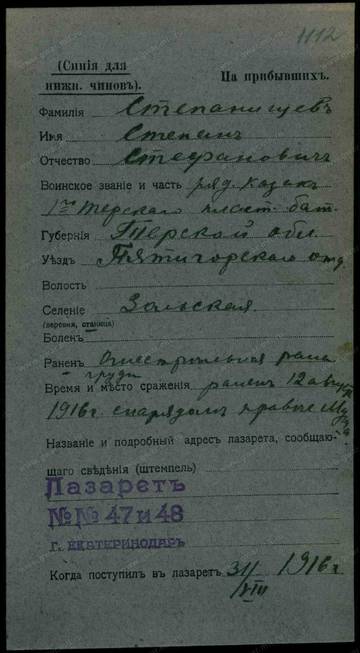 4112
(Синія для
нижн. чиновъ).
На прибывшихъ.
Фамилія Степанищевъ
Имя Степанъ
Отчество Стефановичъ
Воинское званіе и часть ряд. казакъ
1го Терскаго пласт. бат.
Губернія Терской обл
Уѣздъ Пятигорскаго отд.
Волость
Селеніе Зольская.
(деревня, станица)
Боленъ
Раненъ Огнестрѣльная рана
груди
Время и мѣсто сраженія раненъ 12 августа
1916 г. снарядомъ
Названіе и подробный адресъ лазарета, сообщаю-
щаго свѣдѣнія (штемпель)
Лазаретъ
№№ 47 и 48
г. ЕКАТЕРИНОДАРЪ
Когда поступилъ въ лазаретъ 31/VIII 1916 г